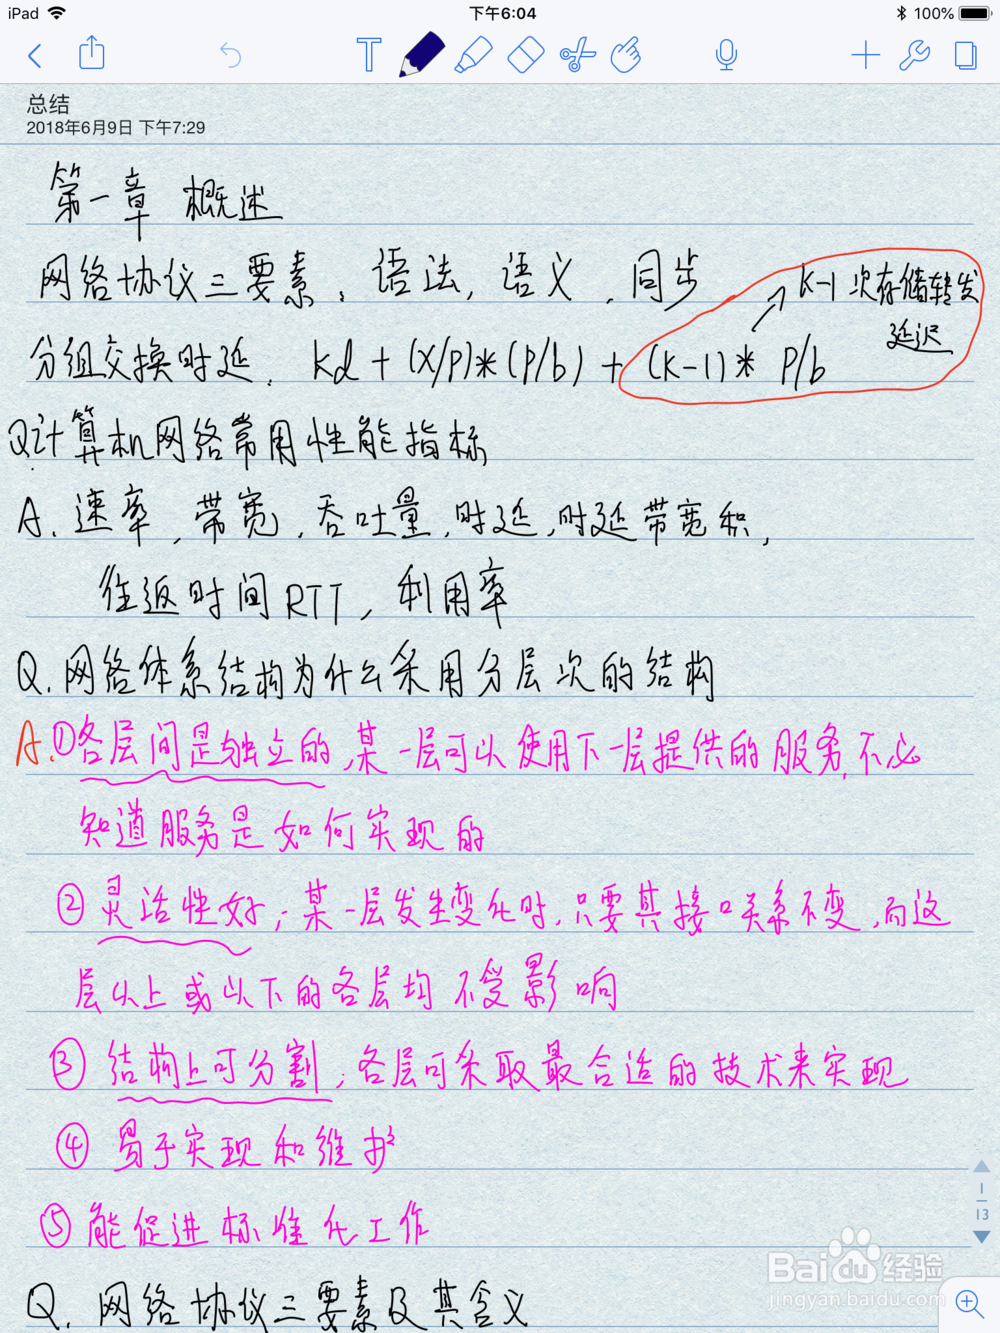 iPad 下午6:04 100%
T
总结
2018年6月9日 下午7:29
第一章 概述
网络协议三要素：语法，语义，同步
K-1次存储转发
延迟
分组交换时延：kd + (x/p)*(p/b) + (k-1) * p/b
Q:计算机网络常用性能指标
A. 速率，带宽，吞吐量，时延，时延带宽积，
往返时间RTT，利用率
Q. 网络体系结构为什么采用分层次的结构
A.①各层间是独立的，某一层可以使用下一层提供的服务，不必
知道服务是如何实现的
②灵活性好，某一层发生变化时，只要其接口关系不变，而这
层以上或以下的各层均不受影响
③结构上可分割，各层可采取最合适的技术来实现
④易于实现和维护
⑤能促进标准化工作
1
13
Q. 网络协议三要素及其含义
Baidu经验
jingyan.baidu.com